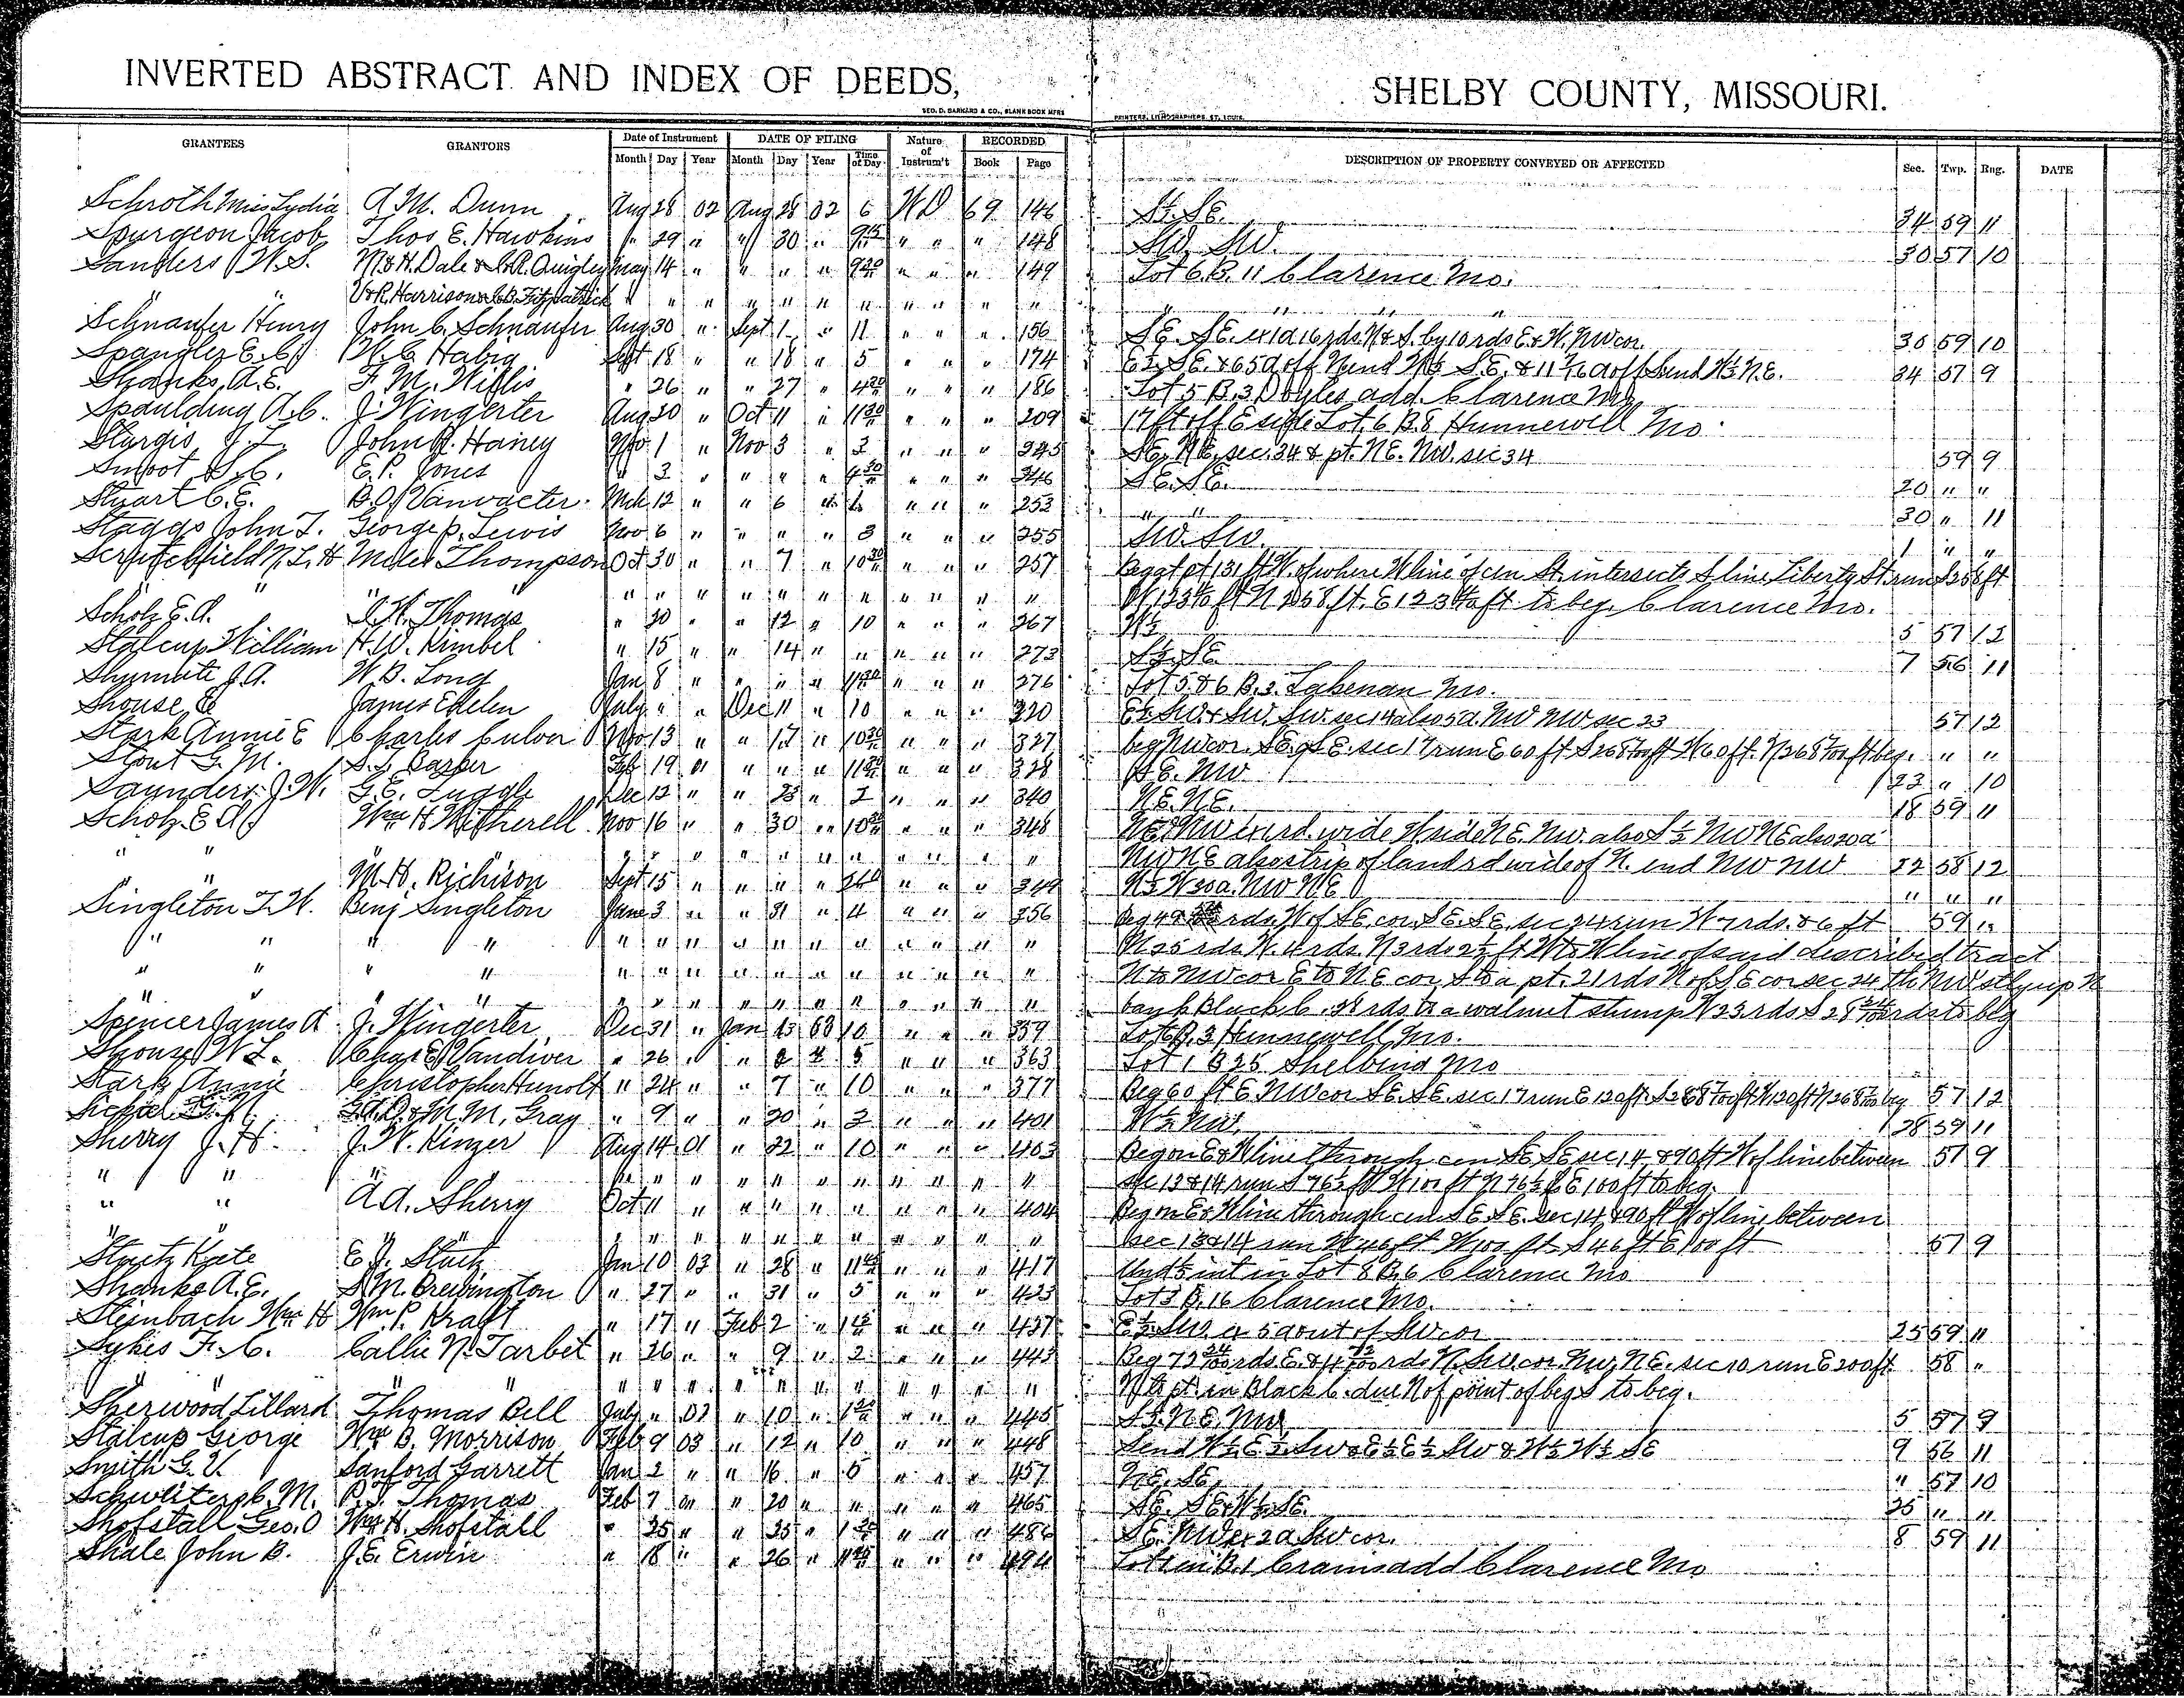 INVERTED ABSTRACT AND INDEX OF DEEDS, SHELBY COUNTY, MISSOURI.
GEO. D. BARNARD & CO., BLANK BOOK MFRS PRINTERS, LITHOGRAPHERS, ST. LOUIS.
GRANTEES GRANTORS Date of Instrument DATE OF FILING Nature of Instrum't RECORDED DESCRIPTION OF PROPERTY CONVEYED OR AFFECTED Sec. Twp. Rng. DATE
Month Day Year Month Day Year Time of Day Book Page
Schroth Miss Lydia A. M. Dunn Aug 28 02 Aug 28 02 6 WD 69 146 S½ SE. 34 59 11
Spurgeon Jacob Thos E. Hawkins " 29 " " 30 " 9 15 " " " 148 SW. SW. 30 57 10
Sanders W. S. M & H. Dale & Quigley May 14 " " " " 9 20 " " " 149 Lot 6 B. 11 Clarence Mo.
" " V & R. Harrison & C.B. Fitzpatrick " " " " " " " " " " " " " "
Schnaufer Henry John C. Schnaufer Aug 30 " Sept 1 " 11 " " " 156 SE. SE. ex 1a 16 rds. N & S. by 10 rds E & W. NW cor. 36 59 10
Spangler E. C. W. C. Habig Sept 18 " " 18 " 5 " " " 174 E½ SE. & 65 a off N end W½ SE. & 11 a off S end W½ N.E. 34 57 9
Shanks, A. E. F. M. Willis " 26 " " 27 " 4 30 " " " 186 Lot 5 B. 3 Doyles add. Clarence Mo
Spaulding A. C. J. Wingerter Aug 20 " Oct 11 " 11 30 " " " 209 17 ft off E side Lot 6 B. 8 Hunnewell Mo.
Sturgis J. L. John R. Haney Nov 1 " Nov 3 " 3 " " " 245 SE. NE. sec. 34 & pt. NE. NW. sec 34 59 9
Smoot S. C. E. P. Jones " 3 " " " " 4 30 " " " 246 SE. SE. 20 " "
Stuart C. E. B. O. Vanvacter. Mch 12 " " 6 " " " " 253 " " 30 " 11
Staggs John T. George P. Lewis Nov 6 " " " " 3 " " " 255 SW. SW. 1 " "
Scrutchfield N. L. H Miles Thompson Oct 30 " " 7 " 10 30 " " " 257 Beg at pt 131 ft W. of where W line of cen St. intersects S line Liberty St. run S 258 ft
" " " " " " " " " " " " " W. 123 ft N 258 ft. E 123 ft. to beg. Clarence Mo.
Scholz E. A. J. H. Thomas " 20 " " 12 " 10 " " " 267 W½ 5 57 12
Stalcup William H. W. Kimbel " 15 " " 14 " " " " " 273 S½ SE 7 56 11
Shumate J. A. W. B. Long Jan 8 " " " " 11 30 " " " 276 Lot 5 & 6 B. 3. Lakenan Mo.
Shouse E James Edelen July " " Dec 11 " 10 " " " 320 E½ SW. & SW. SW. sec 14 also 5 a. NW NW sec 23 57 12
Stark Annie E Charles Culver Nov 13 " " 17 " 10 30 " " " 327 beg NW cor. SE. SE. sec 17 run E 60 ft S 268 ft W 60 ft. N 268 ft beg. " "
Stout G. M. S. J. Barger Feb 19 01 " " " 11 30 " " " 328 SE. NW 23 " 10
Saunders J. W. G. E. Tuggle Dec 12 " " 23 " 2 " " " 340 NE. NE. 18 59 11
Scholz E A Wm H Witherell Nov 16 " " 30 " 10 30 " " " 348 NE. NW ex 1 rd. wide W side NE. NW. also S½ NW NE also 20 a
" " " " " " " " " " " " NW NE also strip of land rd wide of N. end NW NW 22 58 12
" " M. H. Richison Sept 15 " " " " " " " 349 N½ W 30 a. NW NE " " "
Singleton T. W. Benj Singleton June 3 " " 31 " 4 " " " 356 Beg 49 rds W of SE. cor. SE. SE. sec 24 run W 7 rds. & 6 ft 59 12
" " " " " " " " " " " " " " " N 25 rds. W. 4 rds. N 3 rds 2½ ft W to W line of said described tract
" " " " " " " " " " " " " " " N to NW cor E to NE cor, S to a pt. 21 rds N of SE cor sec 24 th NW stly up N
" " " " " " " " " " " " " " bank Black C. rds to a walnut stump W 23 rds S 28 rds to beg
Spencer James A J. Wingerter Dec 31 " Jan 13 03 10 " " " 359 Lot B. 3 Hunnewell Mo.
Shouse W. L. Chas E. Vandiver " 26 " " 2 " 5 " " " 363 Lot 1 B 25 Shelbina Mo
Stark Annie Christopher Hunolt " 24 " " 7 " 10 " " " 377 Beg 60 ft E. NW cor SE. SE. sec 17 run E 120 ft. S 268 ft W 120 ft N 268 to beg 57 12
G. D. & M. M. Gray " 9 " " 20 " 2 " " " 401 W½ NW. 28 59 11
Sherry J. H. J. W. Kinzer Aug 14 01 " 22 " 10 " " " 403 Beg on E & W line through cen SE SE sec 14 & 90 ft W of line between 57 9
" " " " " " " " " " " " sec 13 & 14 run S 76½ ft W 100 ft N 76½ ft E 100 ft to beg.
" " A. A. Sherry Oct 11 " " " " " " " " 404 Beg on E & W line through cen SE. SE. sec 14, & 90 ft W of line between
" " " " " " " " " " " " sec 13 & 14 run N 46 ft W 100 ft S 46 ft E 100 ft 57 9
Stuitz Kate E. J. Jan 10 03 " 28 " " " " 417 Und ⅕ int in Lot 8 B. 6 Clarence Mo
Shanks A. E. S. M. Brewington " 27 " " 31 " 5 " " " 423 Lot 3 B. 16 Clarence Mo.
Steinbach Wm H Wm P. Kraft " 17 " Feb 2 " " " " 437 E½ SW. ex 5 a out of SW cor 25 59 11
Sykes F. C. Callie N. Tarbet " 26 " " 9 " 2 " " " 443 Beg 73 rds. E. & 4 rds. N. SW cor. NW NE. sec 10 run E 200 ft. 58 "
" " " " " " " " " " " " N to pt. in Black C. due N of point of beg S to beg.
Sherwood Lillard Thomas Bell July " 02 " 10 " 1 30 " " " 445 S½ NE. NW 5 57 9
Stalcup George Wm B. Morrison Feb 9 03 " 12 " 10 " " " 448 S end W½ E½ SW & E½ E½ SW & W½ W½ SE 9 56 11
Smith G. V. Sanford Garrett Jan 2 " " 16 " 5 " " " 457 NE. SE. " 57 10
C. M. P. J. Thomas Feb 7 " " 20 " " " " " 465 SE. SE & W½ SE. 25 " "
Shofstall Geo. O Wm H. Shofstall " 25 " " 25 " " " " 486 SE. NW ex 2 a SW cor. 8 59 11
Shale John B. J. E. Erwin " 18 " " 26 " " " " 494 Lot 1 in B. 1 Crams add Clarence Mo